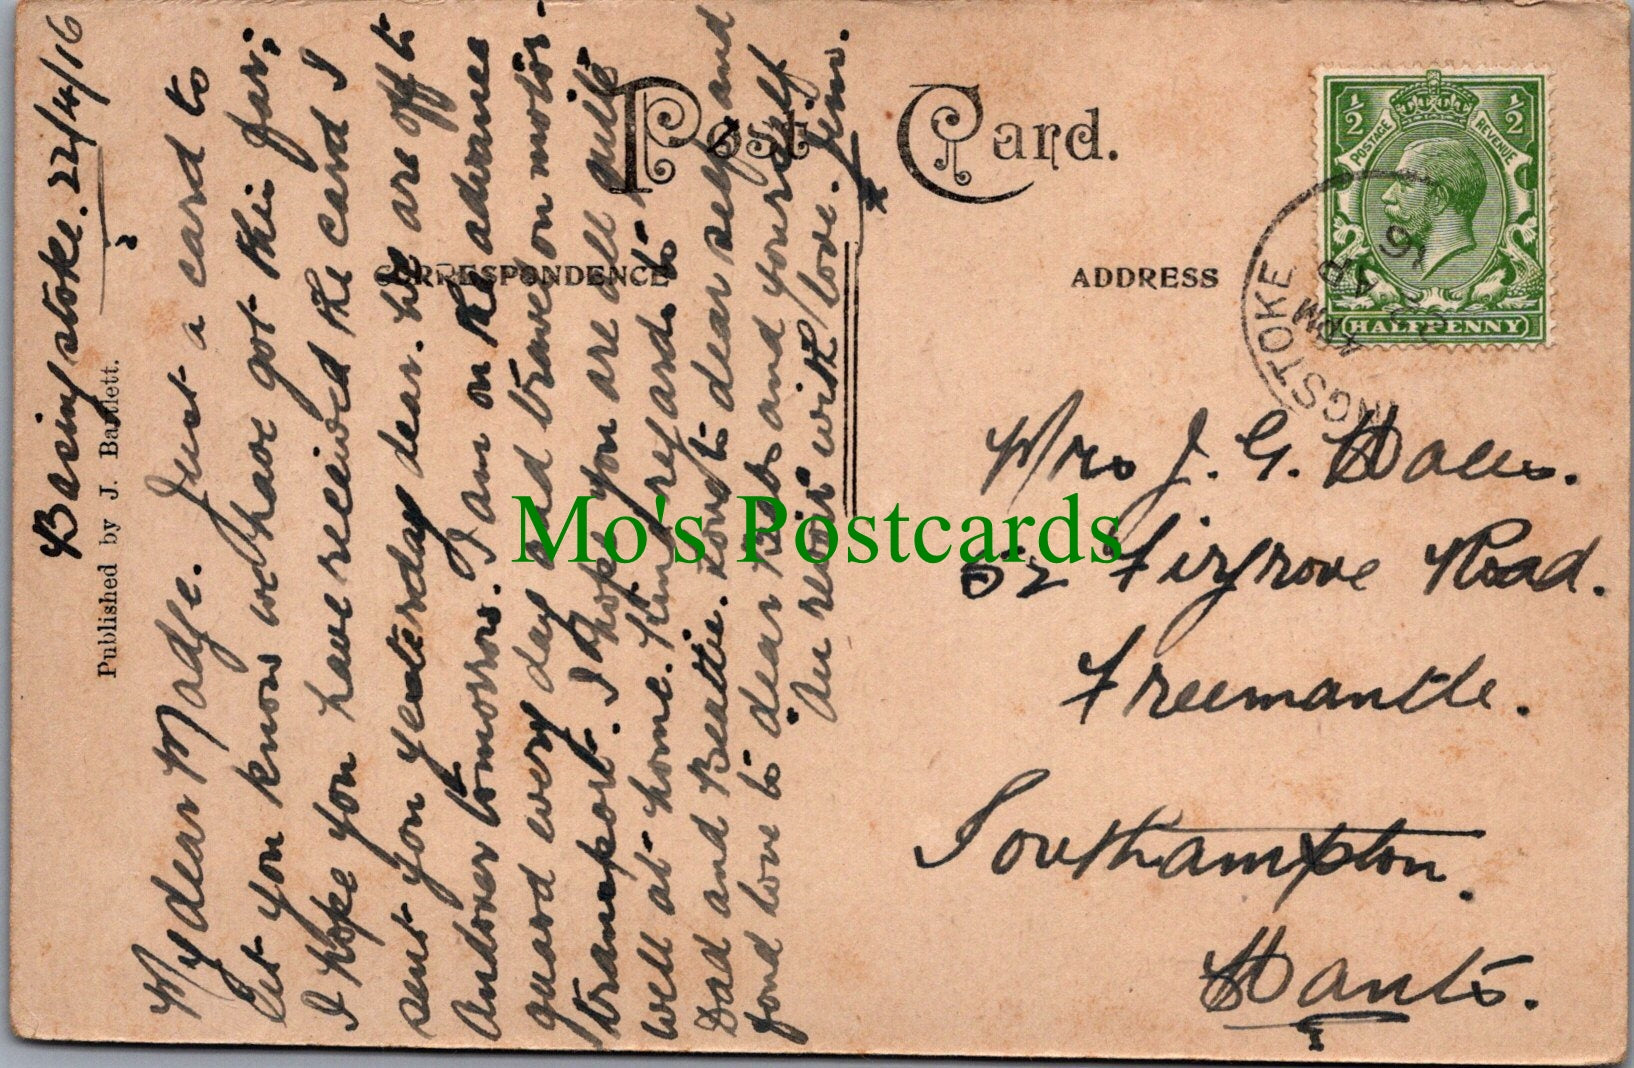 Basingstoke. 22/4/16
Published by J. Bartlett.
My dear Madge. Just a card to
let you know we have got this far;
I hope you have received the card I
sent you yesterday dear. We are off to
Andover tomorrow. I am on the advance
guard every day and travel on motor
transport. I hope you are all quite
well at home. Kind regards to
Dad and Beattie. Love to dear self and
fond love to dear Bab and yourself
Au revoir with love. Jim.
Post Card.
CORRESPONDENCE
ADDRESS
POSTAGE REVENUE
½ ½
HALFPENNY
INGSTOKE
4 PM
22 AP
16
Mrs J. G.
52 Firgrove Road.
Freemantle.
Southampton.
Hants.
Mo's Postcards